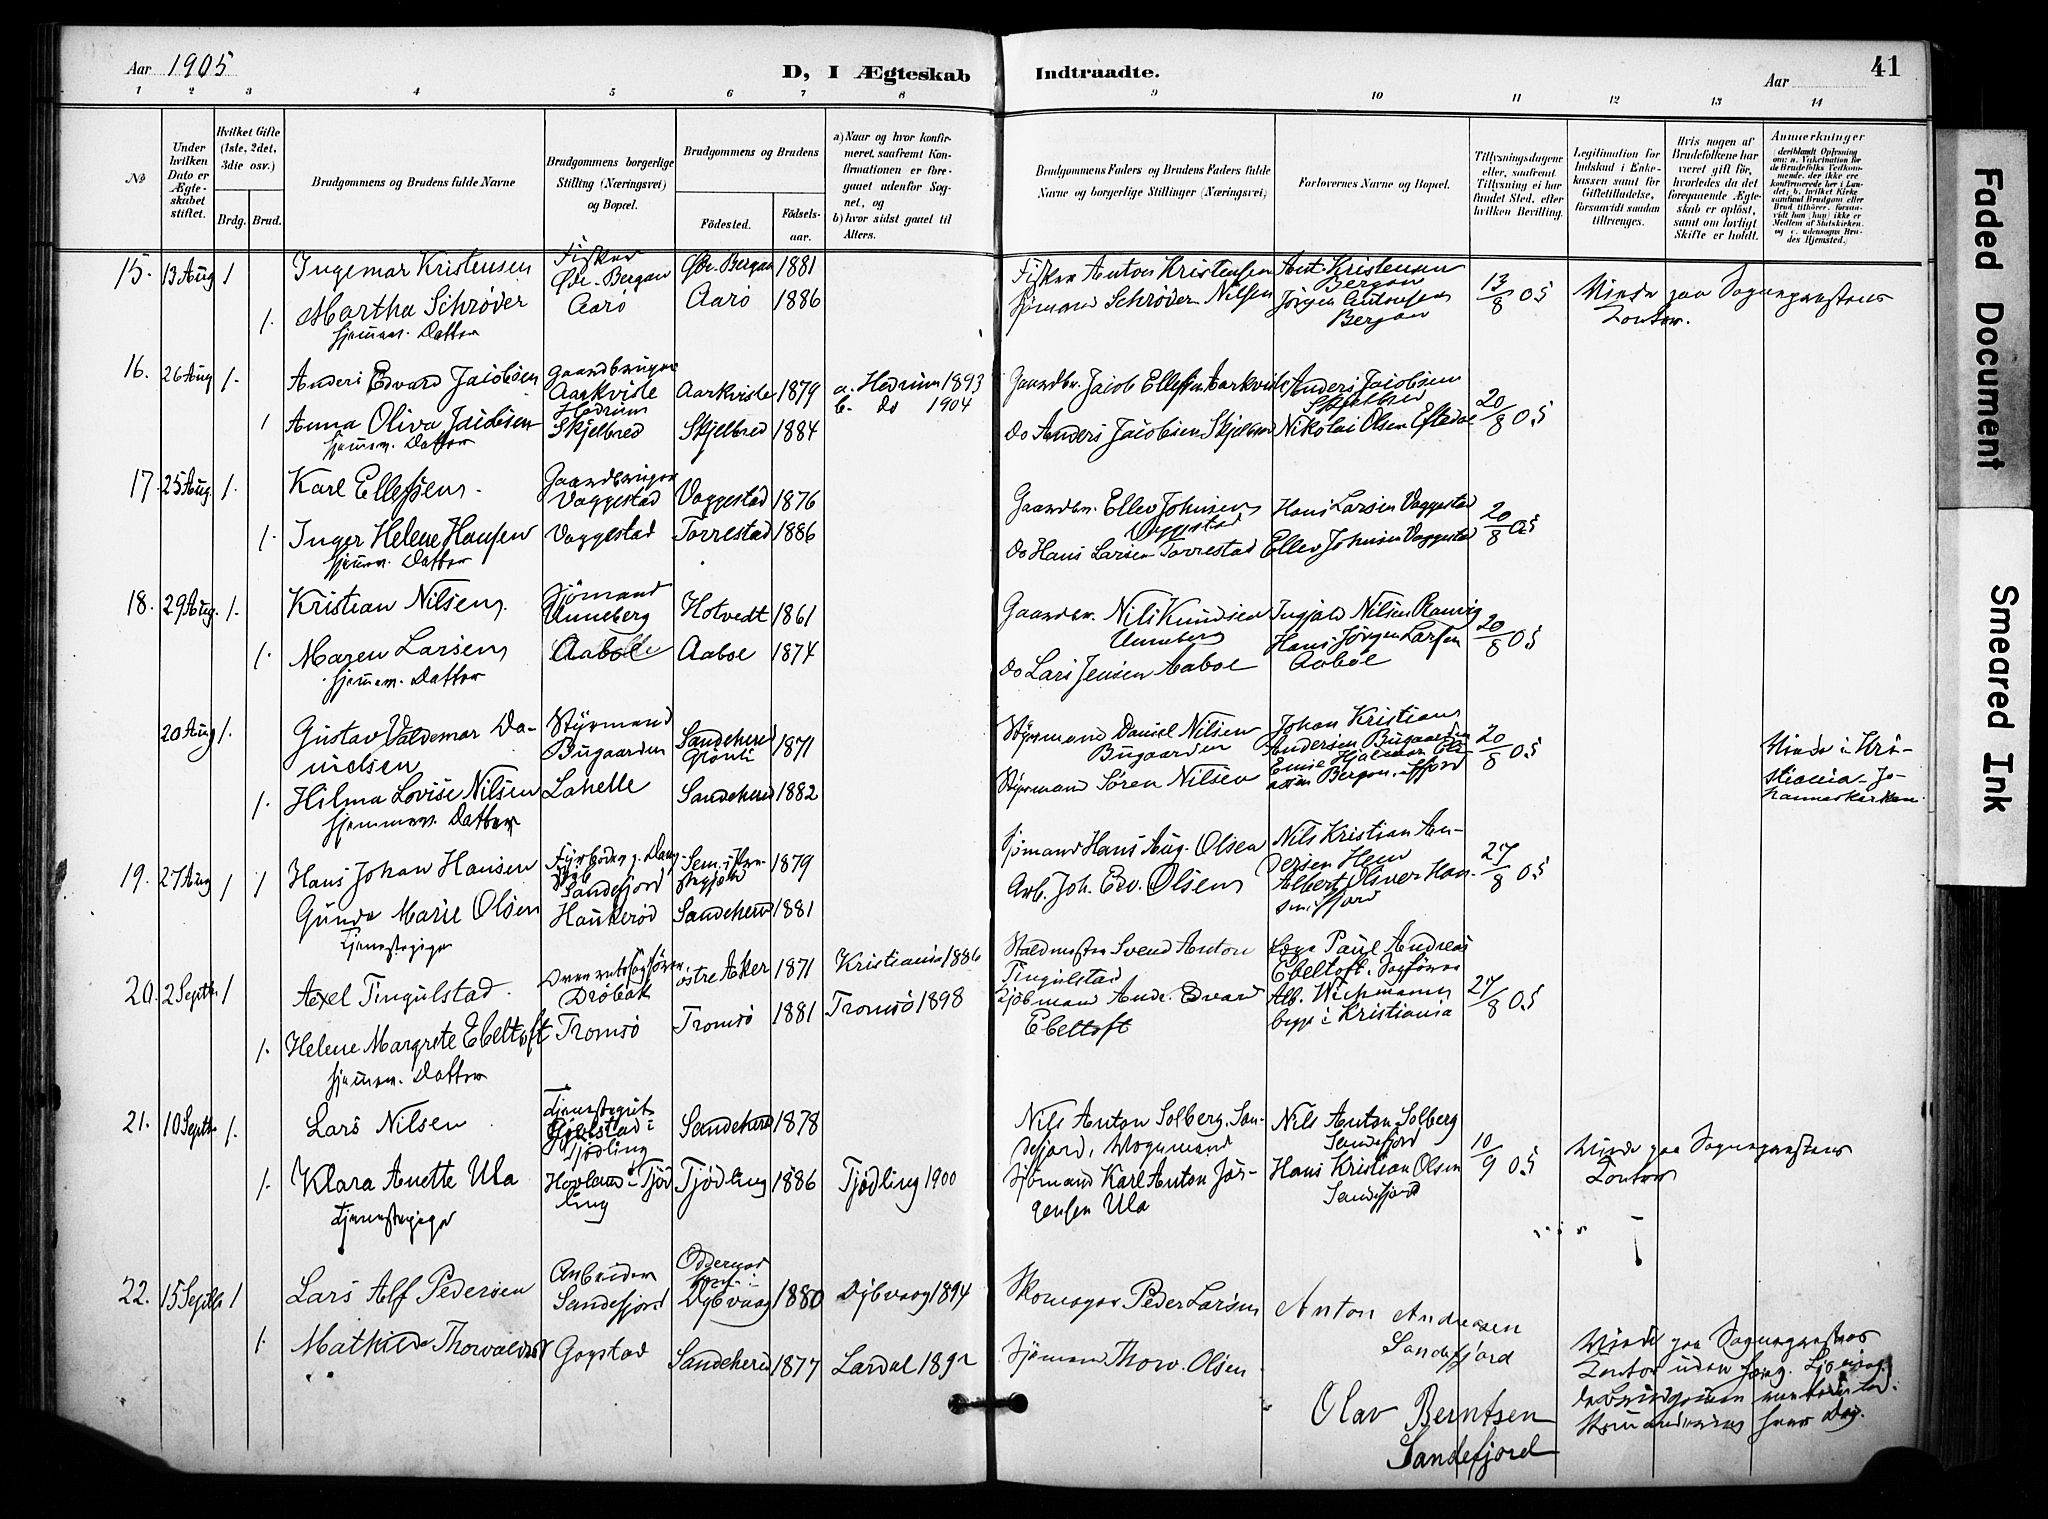 Aar 1905
D, I Ægteskab Indtraadte.
Aar
41
1 2 3 4 5 6 7 8 9 10 11 12 13 14
No
Under hvilken Dato er Ægteskabet stiftet.
Hvilket Gifte (1ste, 2det, 3die osv.)
Brdg. Brud.
Brudgommens og Brudens fulde Navne
Brudgommens borgerlige Stilling (Næringsvei) og Bopæl.
Brudgommens og Brudens
Födested. Födselsaar.
a) Naar og hvor konfirmeret, saafremt Konfirmationen er foregaaet udenfor Sognet, og
b) hvor sidst gaaet til Alters.
Brudgommens Faders og Brudens Faders fulde Navne og borgerlige Stillinger (Næringsvei)
Forlovernes Navne og Bopæl.
Tillysningsdagene eller, saafremt Tillysning ei har fundet Sted, efter hvilken Bevilling.
Legitimation for Indskud i Enkekassen samt for Giftetilladelse, forsaavidt saadan tiltrænges.
Hvis nogen af Brudefolkene har været gift för, hvorledes da det foregaaende Ægteskab er oplöst, samt om lovligt Skifte er holdt.
Anmerkninger
15. 13 Aug 1 Ingemar Kristensen Fisker Ø. Bergan Ø. Bergan 1881 Fisker Anton Kristensen Ant. Kristensen Bergan 13/8 05 Viede paa Sogneprestens Kontor.
1. Martha Schrøder Aarö Aarö 1886 Sjömand Schrøder Nilsen Jörgen Antonsen Bergan
hjemmev. Datter
16. 26 Aug 1. Anders Edvard Jacobsen Gaardbruger Aarkvisle Hedrum Aarkvisle 1879 a. Hedrum 1893 b. do 1904 Gaardbr. Jacob Ellefsen Aarkvisle Anders Jacobsen Skjelbred 20/8 05
1 Anna Oliva Jacobsen Skjelbred Skjelbred 1884 do Anders Jacobsen Skjelbred Nikolai Olsen Eftedal
hjemmev. Datter
17. 25 Aug. 1. Karl Ellefsen. Gaardbruger Vaggestad Vaggestad 1876 Gaardbr. Ellev Johnsen Vaggestad Hans Larsen Vaggestad 20/8 05
1. Inger Helene Hansen Vaggestad Torrestad 1886 do Hans Larsen Torrestad Ellev Johnsen Vaggestad
hjemmev. Datter
18. 29 Aug. 1. Kristian Nilsen Sjömand Unneberg Hotvedt 1861 Gaardbr. Nils Knudsen Unneberg Ingjald Nilsen Ranvig 20/8 05
1. Maren Larsen Aaboe Aaboe 1874 do Lars Jensen Aaboe Hans Jörgen Larsen Aaboe
hjemmev. Datter
20 Aug 1. Gustav Valdemar Danielsen Styrmand Bugaarden Sandeherred 1871 Styrmand Daniel Nilsen Bugaarden Johan Kristian Andersen Bugaarden 20/8 05 Viede i Kristiania - Johanneskirken.
1. Hilma Lovise Nilsen Lahelle Sandeherred 1882 Styrmand Sören Nilsen
hjemmev. Datter
19. 27 Aug 1 1 Hans Johan Hansen Sandefjord 1879 Sjömand Hans Aug. Olsen Nils Kristian Andersen Hem 27/8 05
Gunda Marie Olsen Haukeröd Sandeherred 1881 Arb. Joh. Edv. Olsen Albert Oliver Hansen
Tjenestepige
20. 2 Septbr. 1 Axel Tingulstad. Drøbak Østre Aker 1871 Kristiania 1886 Svend Anton Tingulstad Læge Paul Andreas Ebeltoft. 27/8 05
1. Helene Margrete Ebeltoft Tromsö Tromsö 1881 Tromsö 1898 Kjöbmand Andr. Edvard Ebeltoft begge i Kristiania
hjemmev. Datter
21. 10 Septbr. 1. Lars Nilsen Tjenestegut Tjödling Sandeherred 1878 Nils Anton Solberg, Sandefjord, Vognmand Nils Anton Solberg Sandefjord 10/9 05 Viede paa Sogneprestens Kontor
1. Klara Anette Ula Hovland i Tjödling Tjödling 1886 Tjödling 1900 Sjömand Karl Anton Jörgensen Ula Hans Kristian Olsen Sandefjord
Tjenestepige
22. 15 Septbr 1 Lars Alf Pedersen Arbeider Sandefjord Oddernes Dybvaag 1880 Dybvaag 1894 Skomager Peder Larsen Anton Andresen Sandefjord Viede paa Sogneprestens Kontor
1. Mathilde Thorvaldsen Gogstad Sandeherred 1877 Lardal 1892 Sjömand Thorv. Olsen Olav Berntsen Sandefjord
Faded Document
Smeared Ink